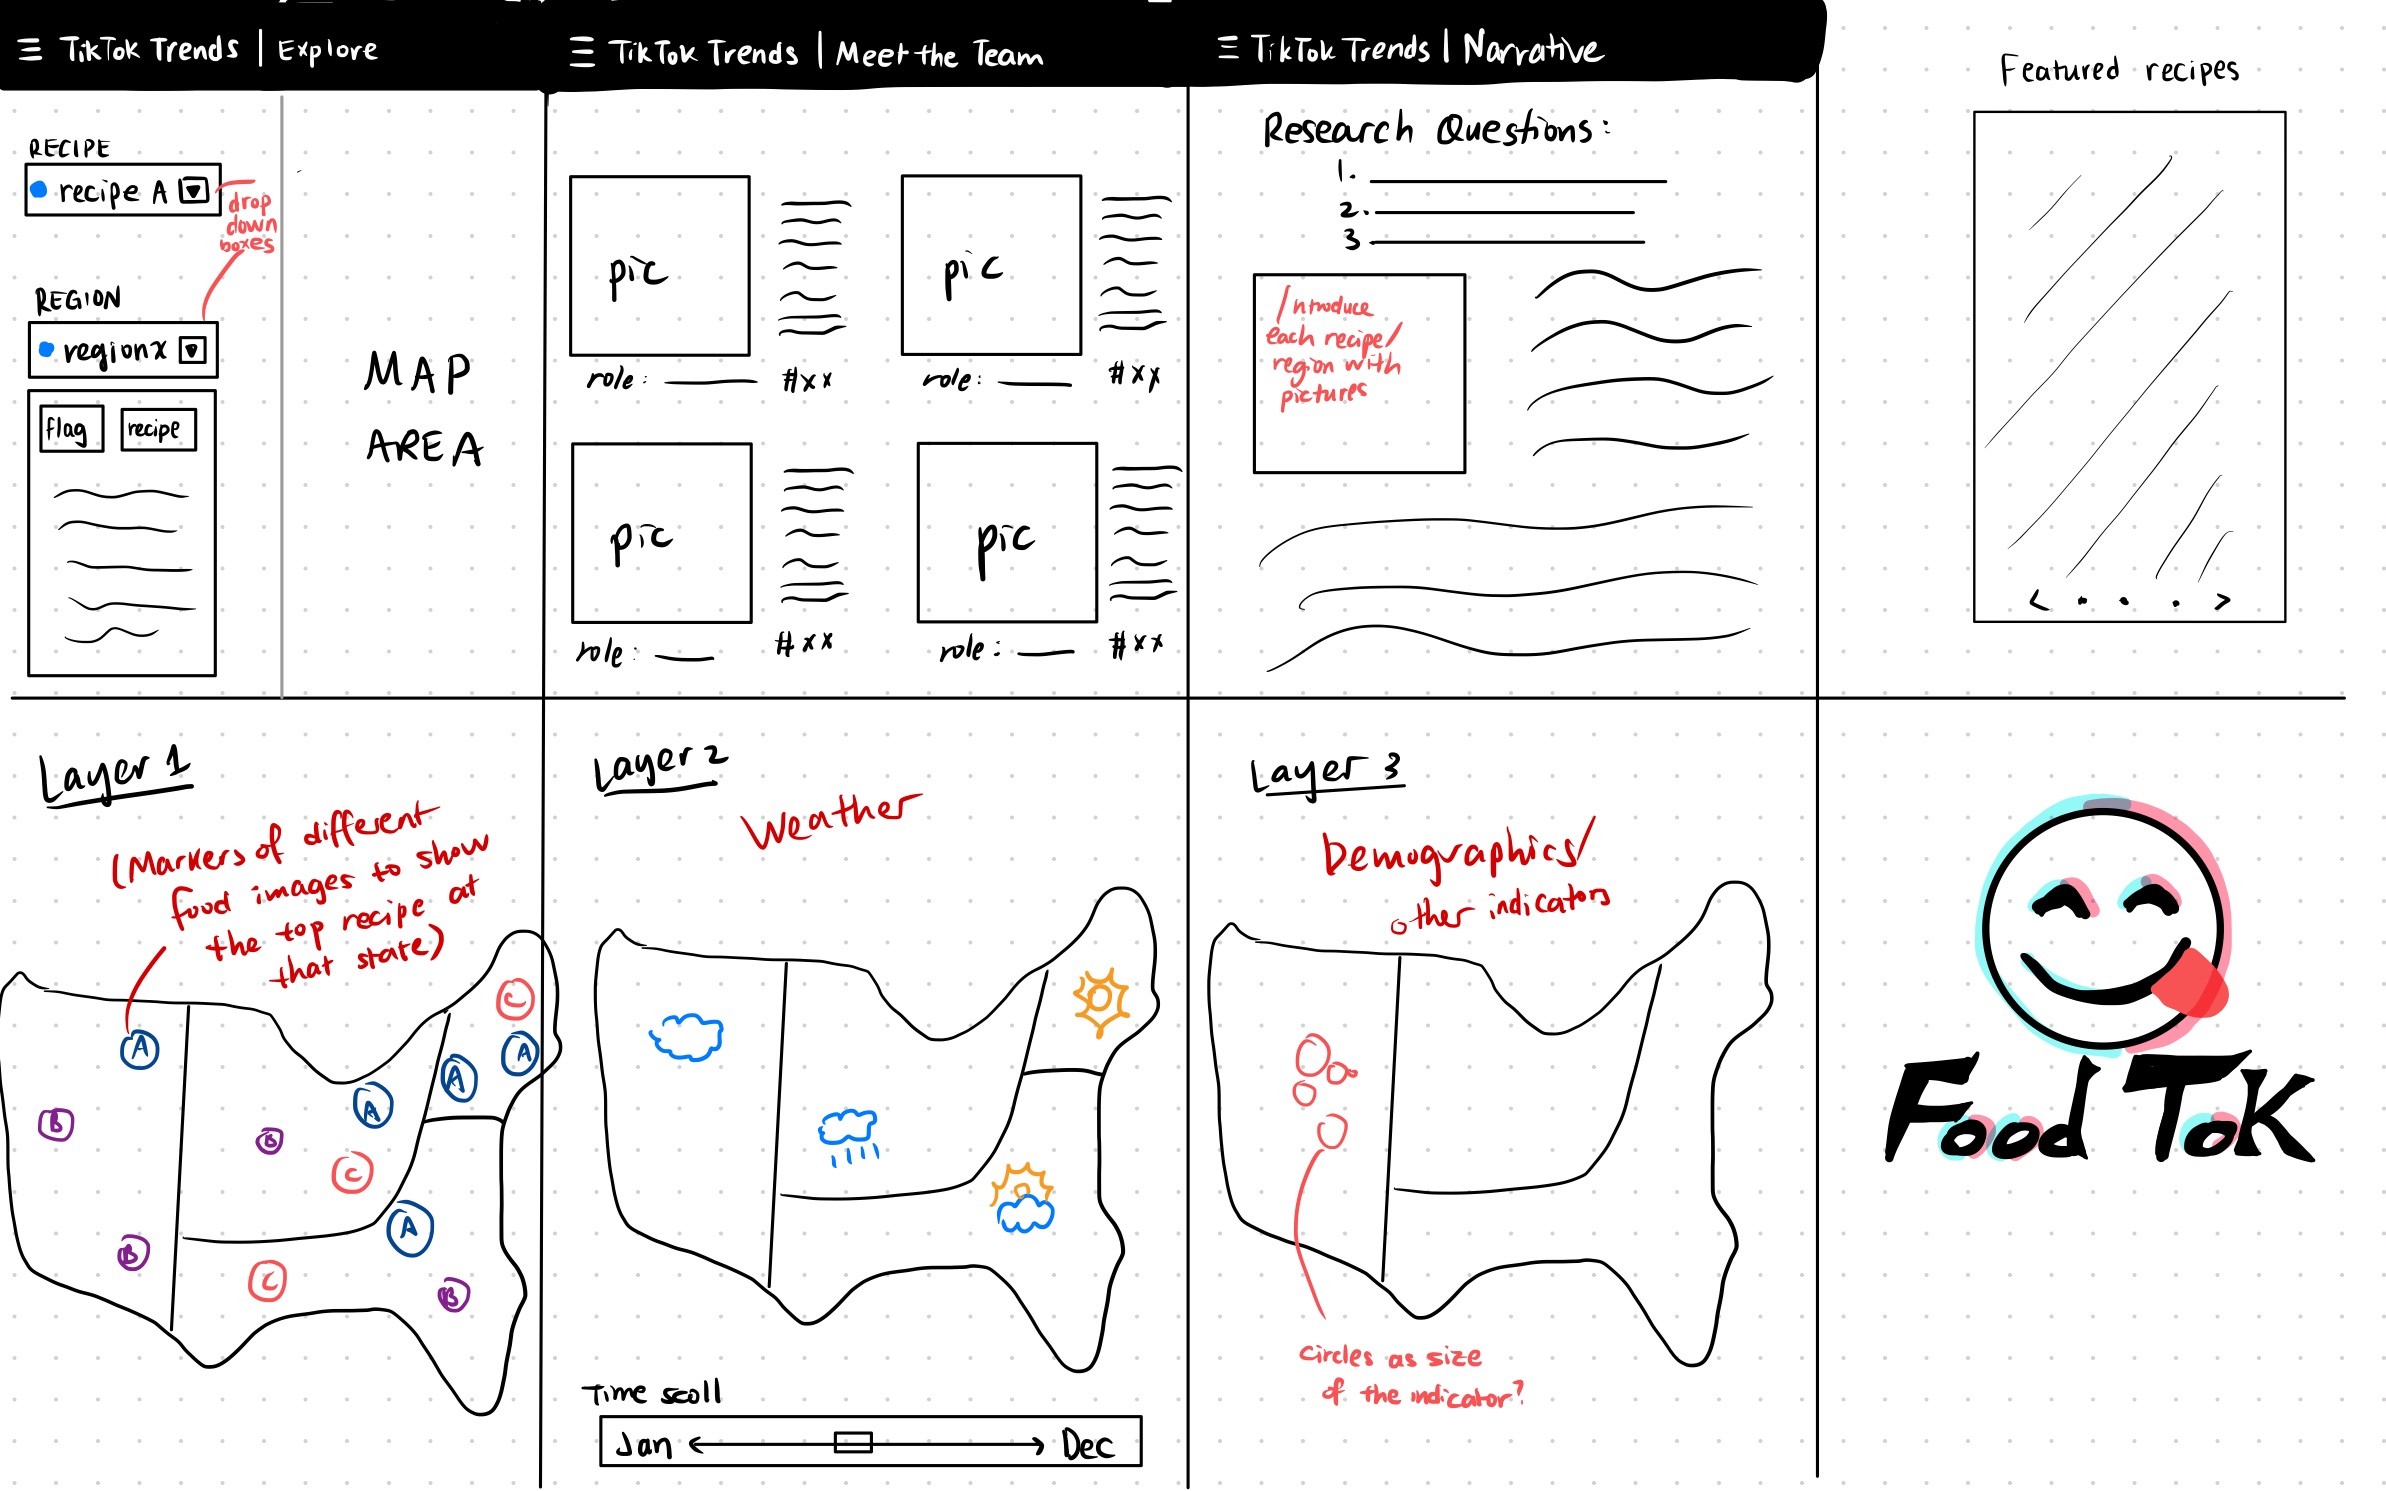 TikTok Trends | Explore
RECIPE
recipe A
drop
down
boxes
REGION
region x
flag
recipe
MAP
AREA
TikTok Trends | Meet the Team
pic
role:
#xx
pic
role:
#xx
pic
role:
#xx
pic
role:
#xx
TikTok Trends | Narrative
Research Questions:
1.
2.
3
Introduce
each recipe/
region with
pictures
Featured recipes
< >
Layer 1
(Markers of different
food images to show
the top recipe at
that state)
C
A
A
A
A
B
B
C
A
B
C
B
Layer 2
Weather
Time scoll
Jan
Dec
Layer 3
Demographics/
other indicators
circles as size
of the indicator?
Food Tok